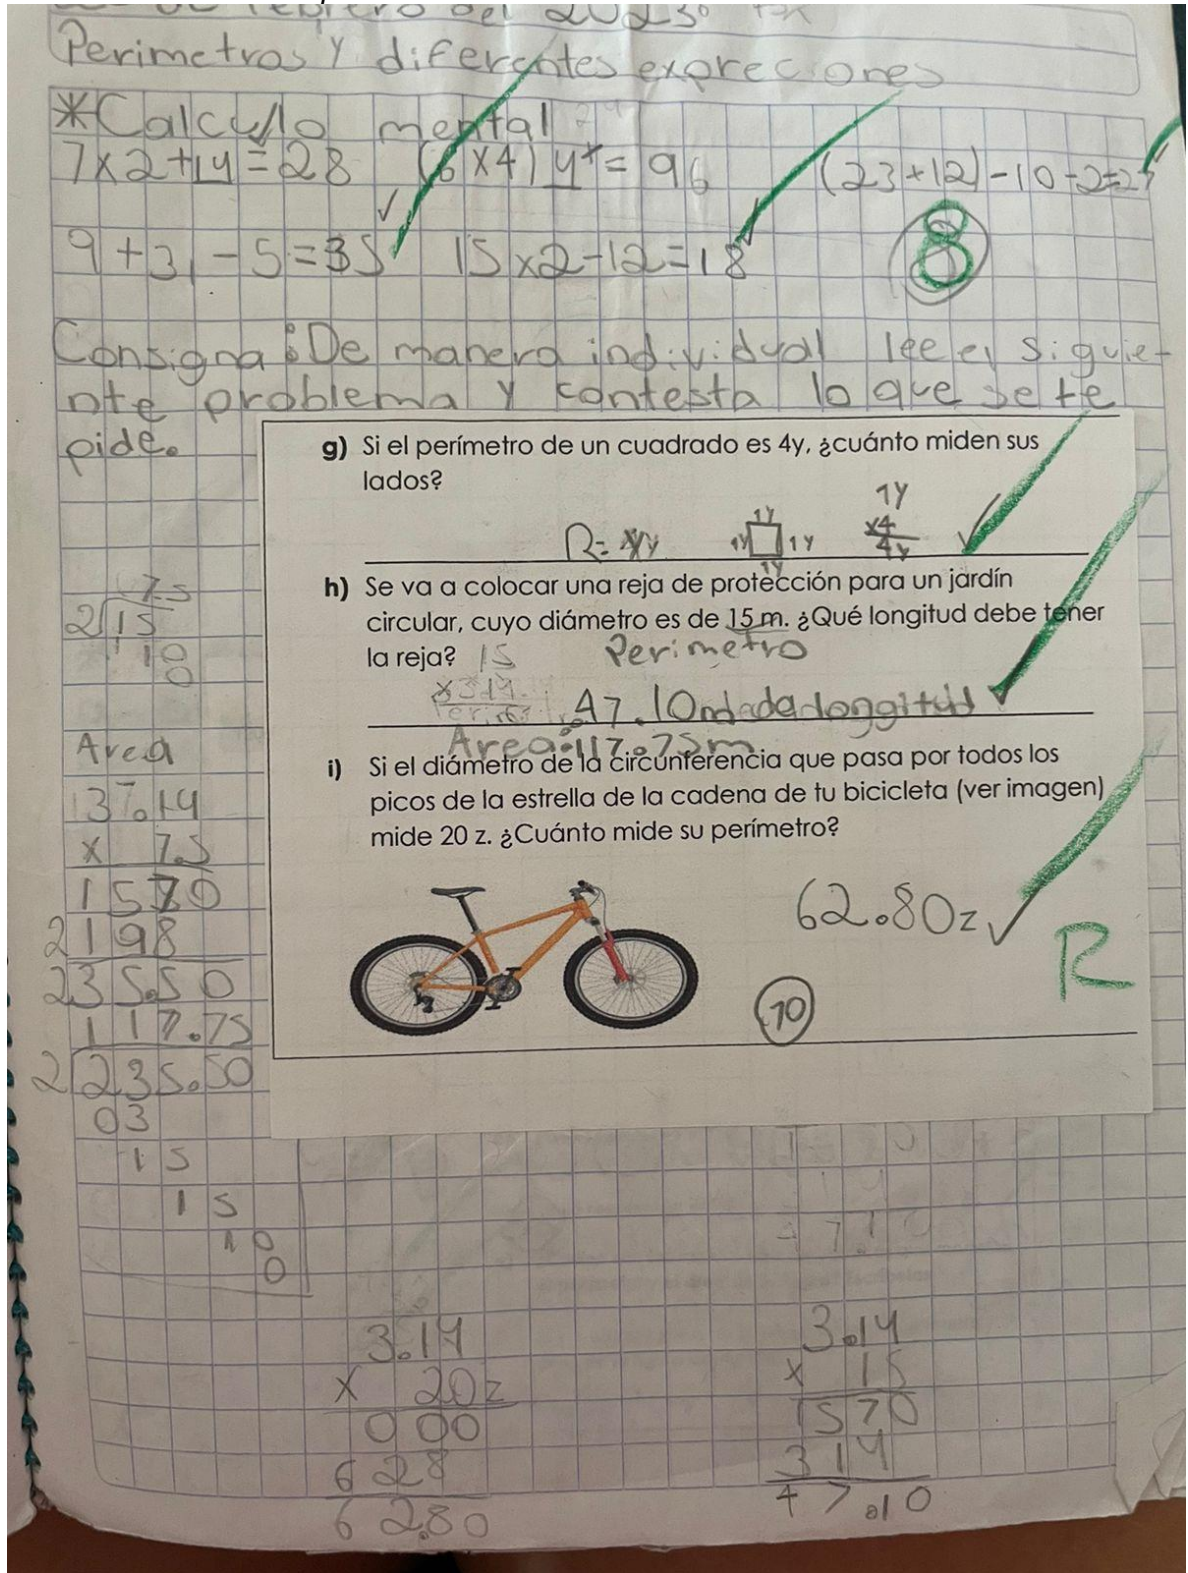 febrero del 2023
Perimetros y diferentes expreciones
*Calculo mental
7x2+14=28 (6x4)4x=96 (23+12)-10-2=23
9+31-5=35 15x2-12=18
8
Consigna: De manera individual lee el siguie-
nte problema y contesta lo que se te
pide.
g) Si el perímetro de un cuadrado es 4y, ¿cuánto miden sus
lados?
1y
x4
4y
1y
1y 1y
1y
h) Se va a colocar una reja de protección para un jardín
circular, cuyo diámetro es de 15 m. ¿Qué longitud debe tener
la reja? 15 Perimetro
x3.14
47.10m de longgitud
Area: 117.75m
i) Si el diámetro de la circunferencia que pasa por todos los
picos de la estrella de la cadena de tu bicicleta (ver imagen)
mide 20 z. ¿Cuánto mide su perímetro?
62.80z
R
10
7.5
2 15
10
0
Area
37.14
x 7.5
1570
2198
235.50
117.75
2 235.50
03
15
15
10
0
3.14
x 20z
000
628
62.80
3.14
x 15
1570
314
47.10